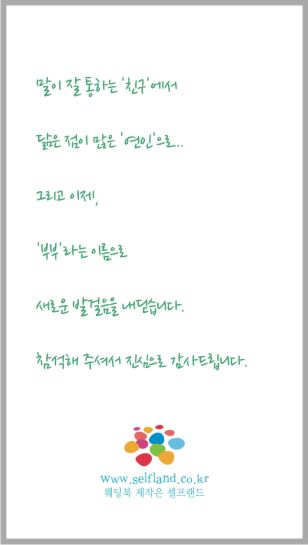 말이 잘 통하는 '친구'에서
닮은 점이 많은 '연인'으로..
그리고 이제,
'부부'라는 이름으로
새로운 발걸음을 내딛습니다.
참석해 주셔서 진심으로 감사드립니다.
www.selfland.co.kr
웨딩북 제작은 셀프랜드